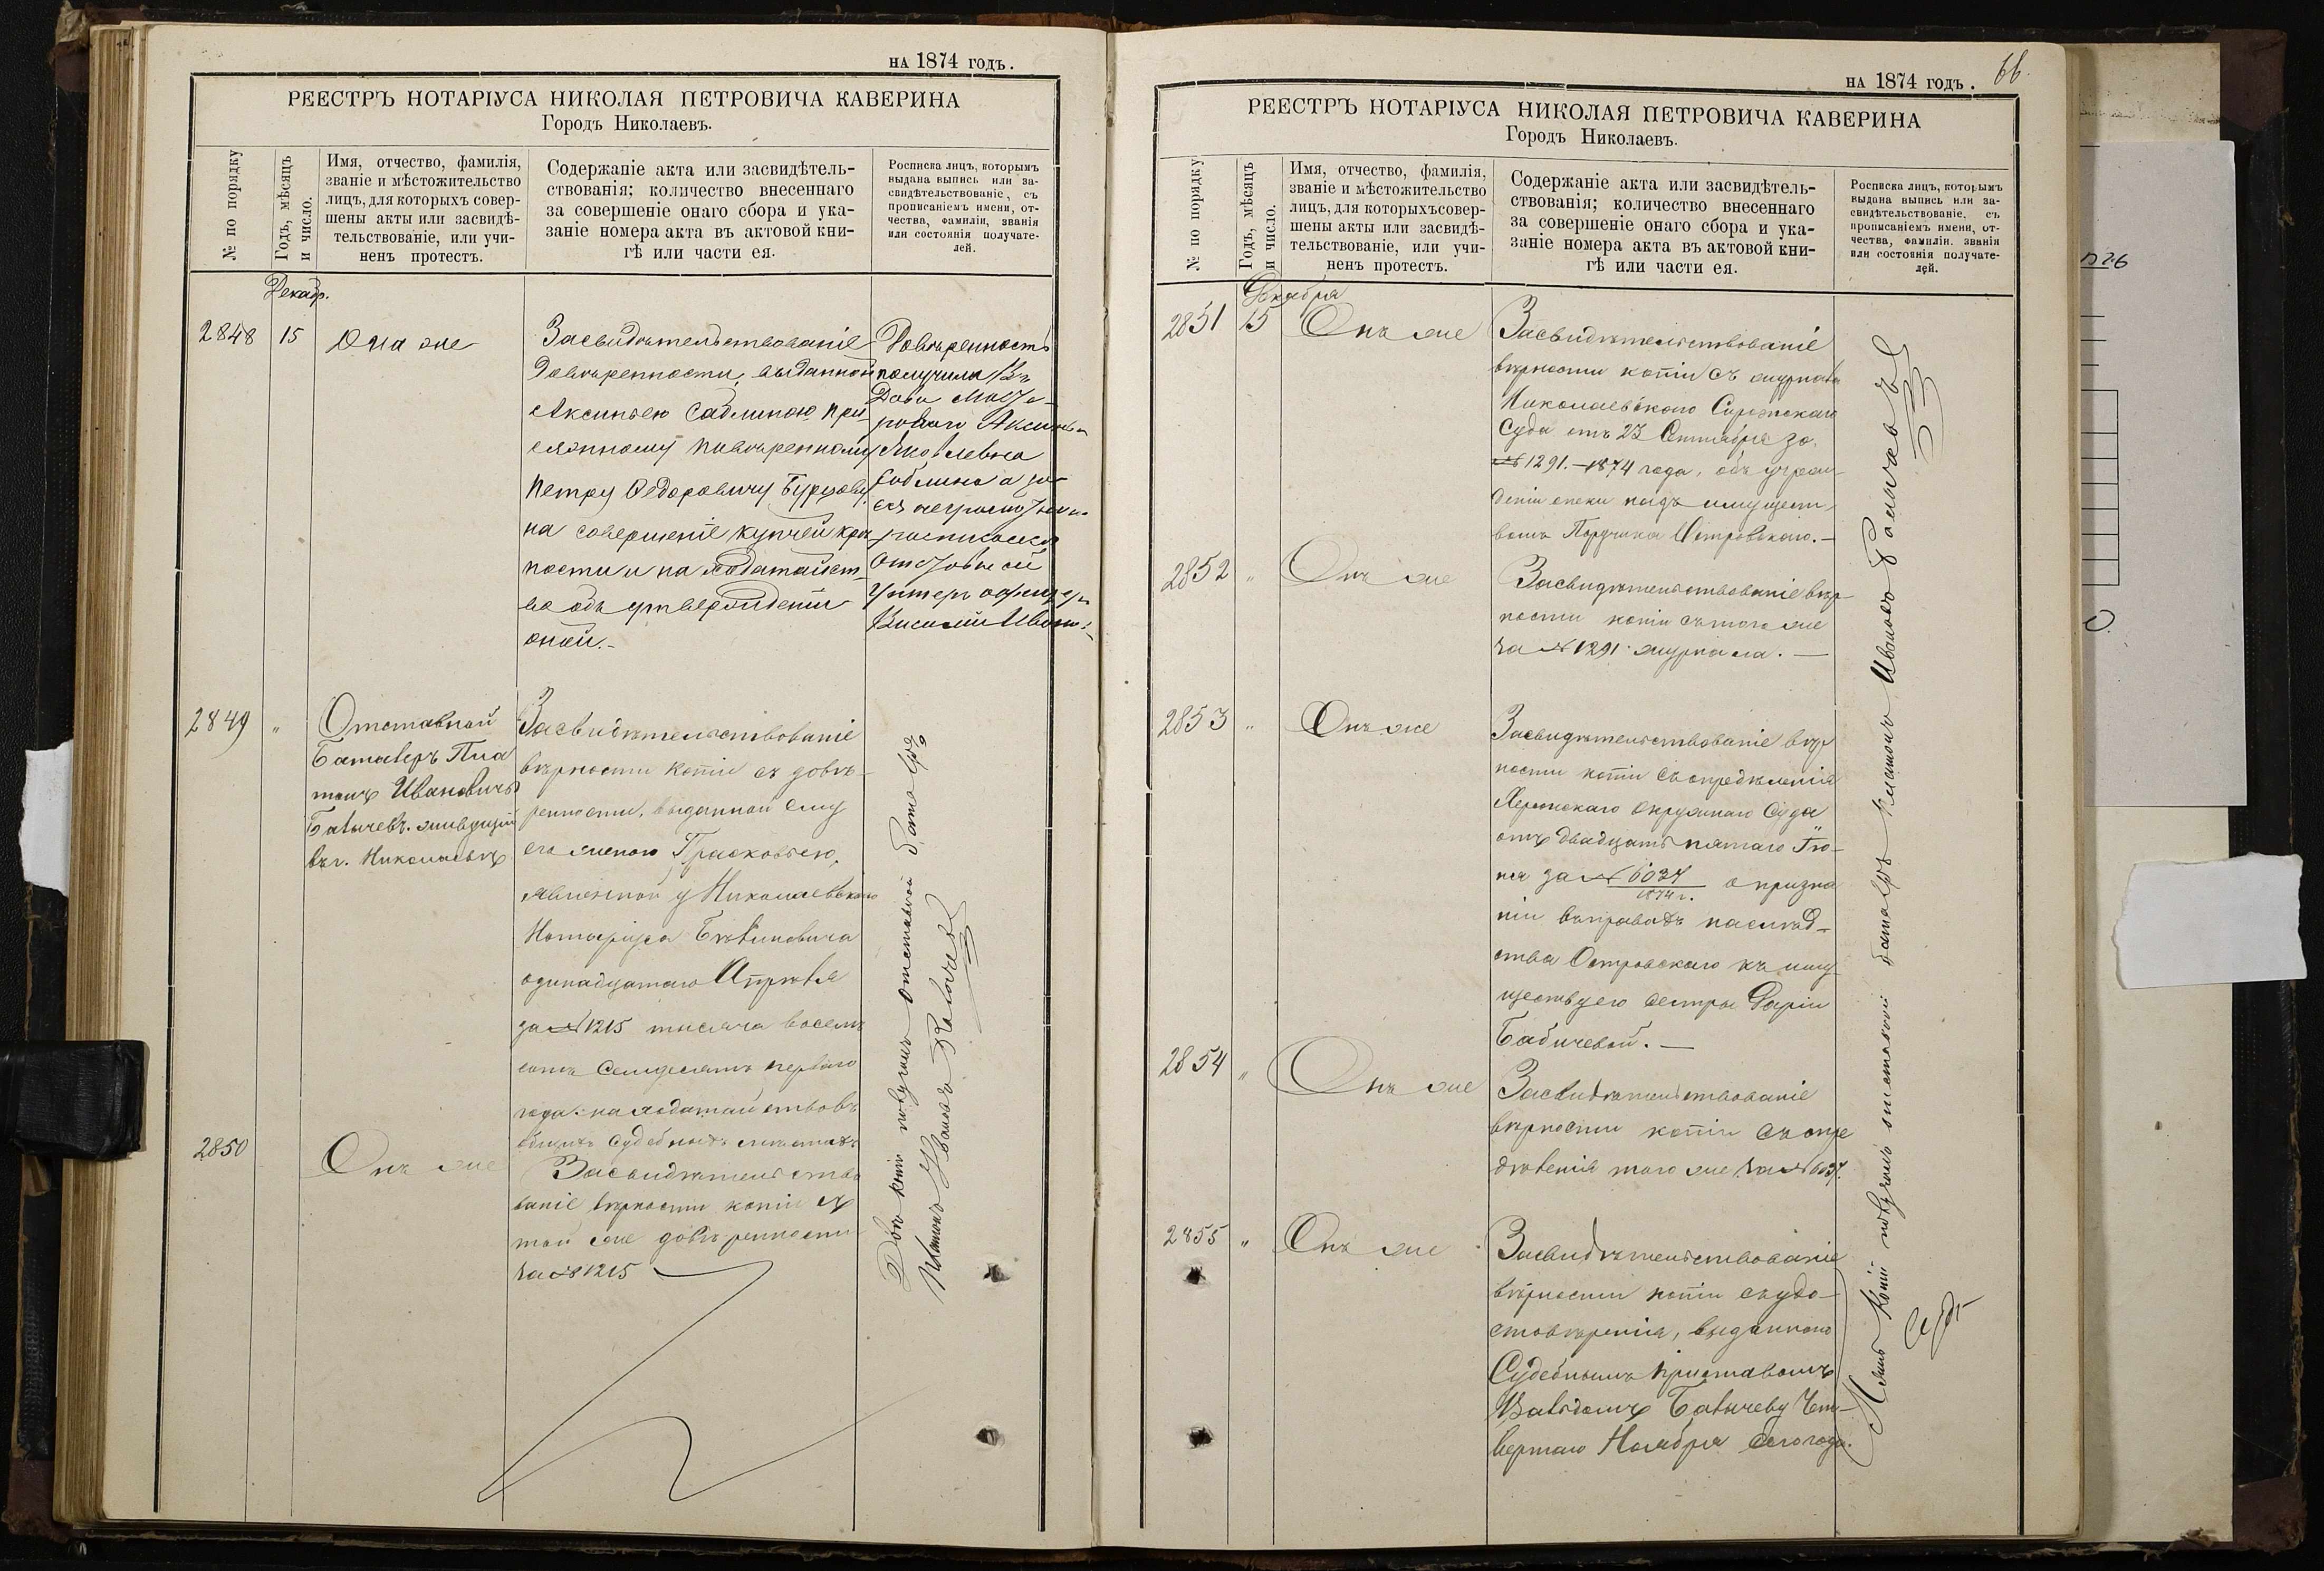 на 1874 годъ.
РЕЕСТРЪ НОТАРІУСА НИКОЛАЯ ПЕТРОВИЧА КАВЕРИНА
Городъ Николаевъ.
№ по порядку
Годъ, мѣсяцъ
и число.
Имя, отчество, фамилія,
званіе и мѣстожительство
лицъ, для которыхъ совер-
шены акты или засвидѣ-
тельствованіе, или учи-
ненъ протестъ.
Содержаніе акта или засвидѣтель-
ствованія; количество внесеннаго
за совершеніе онаго сбора и ука-
заніе номера акта въ актовой кни-
гѣ или части ея.
Росписка лицъ, которымъ
выдана выпись или за-
свидѣтельствованіе, съ
прописаніемъ имени, от-
чества, фамиліи, званія
или состоянія получате-
лей.
Декабр.
2848 15 Она же
Засвидѣтельствованіе
Довѣренности, выданной
Аксиньею Саблиною при-
сяжному повѣренному
Петру Ѳедоровичу Бурцову
на совершеніе купчей крѣ-
пости и на ходатайст-
во объ утвержденіи
оной.-
Довѣренность
получила
Аксинья
Яковлевна
Саблина а за
росписался
Отставной
Унтеръ офицеръ
Василій
2849 "
Отставной
Баталеръ Пла
тонъ Ивановичъ
Бабичевъ. живущій
въ г. Николаевѣ
Засвидѣтельствованіе
вѣрности копіи съ довѣ-
ренности, выданной ему
его женою Прасковьею,
явленной у Николаевскаго
Нотаріуса
одинадцатаго Апрѣля
за № 1215 тысяча восемь
сотъ семдесятъ перваго
года: на ходатайствовъ
общихъ судебныхъ мѣстахъ
2850 Онъ же
Засвидѣтельство
ваніе вѣрности копіи съ
той же довѣренности
за № 1215
Двѣ копіи получилъ отставной баталеръ
Платонъ Ивановъ Бабичевъ
66.
на 1874 годъ.
РЕЕСТРЪ НОТАРІУСА НИКОЛАЯ ПЕТРОВИЧА КАВЕРИНА
Городъ Николаевъ.
№ по порядку
Годъ, мѣсяцъ
и число.
Имя, отчество, фамилія,
званіе и мѣстожительство
лицъ, для которыхъ совер-
шены акты или засвидѣ-
тельствованіе, или учи-
ненъ протестъ.
Содержаніе акта или засвидѣтель-
ствованія; количество внесеннаго
за совершеніе онаго сбора и ука-
заніе номера акта въ актовой кни-
гѣ или части ея.
Росписка лицъ, которымъ
выдана выпись или за-
свидѣтельствованіе, съ
прописаніемъ имени, от-
чества, фамиліи, званія
или состоянія получате-
лей.
Декабря
2851 15 Онъ же
Засвидѣтельствованіе
вѣрности копіи съ журнала
Николаевскаго Сиротскаго
Суда отъ 23 Сентября за
№ 1291.-1874 года, объ учреж-
деніи опеки надъ имущест-
вомъ Поручика Островскаго.-
2852 " Онъ же
Засвидѣтельствованіе вѣр-
ности копіи съ того же
за № 1291 журнала.-
2853 " Онъ же
Засвидѣтельствованіе вѣр
ности копіи съ опредѣленія
Херсонскаго Окружнаго Суда
отъ двадцать пятаго Iю-
ня за № 6027 о призна
1874 г.
ніи въ правахъ наслѣд-
ства Островскаго къ иму-
ществу его сестры Даріи
Бабичевой.-
2854 " Онъ же
Засвидѣтельствованіе
вѣрности копіи съ опре
дѣленія того же за № 6027.
2855 " Онъ же
Засвидѣтельствованіе
вѣрности копіи съ удо-
стовѣренія, выданнаго
Судебнымъ приставомъ
Бабичеву Чет-
вертаго Ноября сего года.
Пять копій получилъ отставной баталеръ Платонъ Ивановъ Бабичевъ